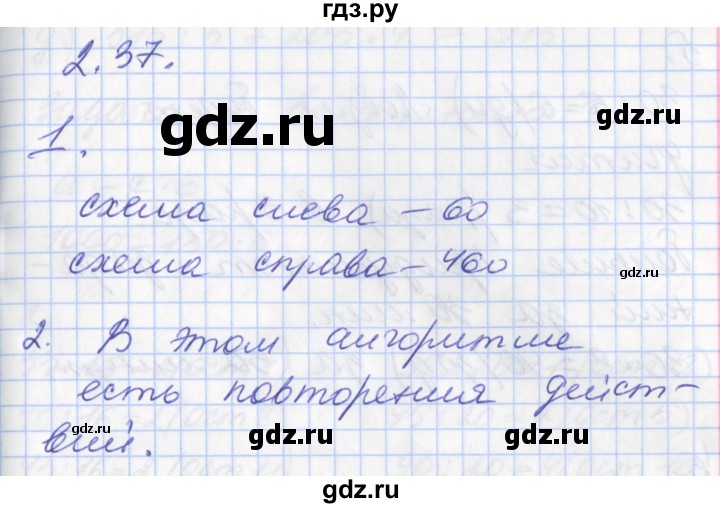 гдз.рф
2.37.
1.
gdz.ru
схема слева – 60
схема справа – 460
gdz.ru
2. В этом алгоритме
есть повторения дейст-
вий.
gdz.ru
gdz.ru
gdz.ru
gdz.ru